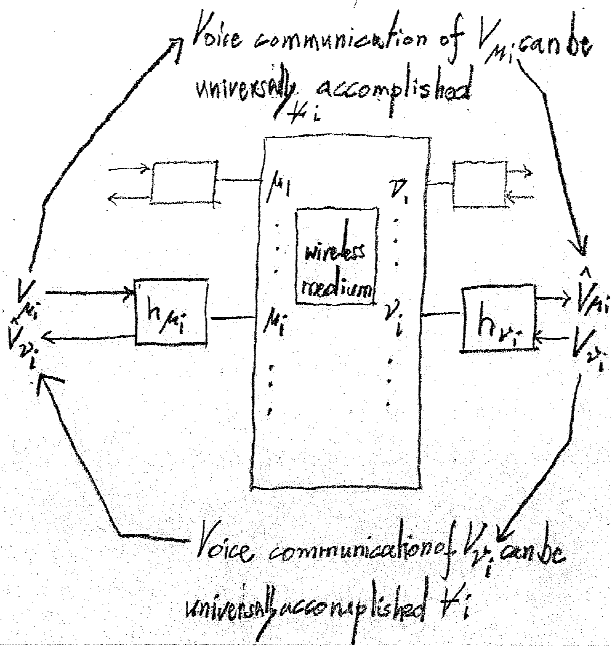 Voice communication of V_μi can be
universally accomplished
∀i
μ1 ν1
wireless
medium
V_μi h_μi μi νi h_νi V̂_μi
V̂_νi V_νi
Voice communication of V_νi can be
universally accomplished ∀i